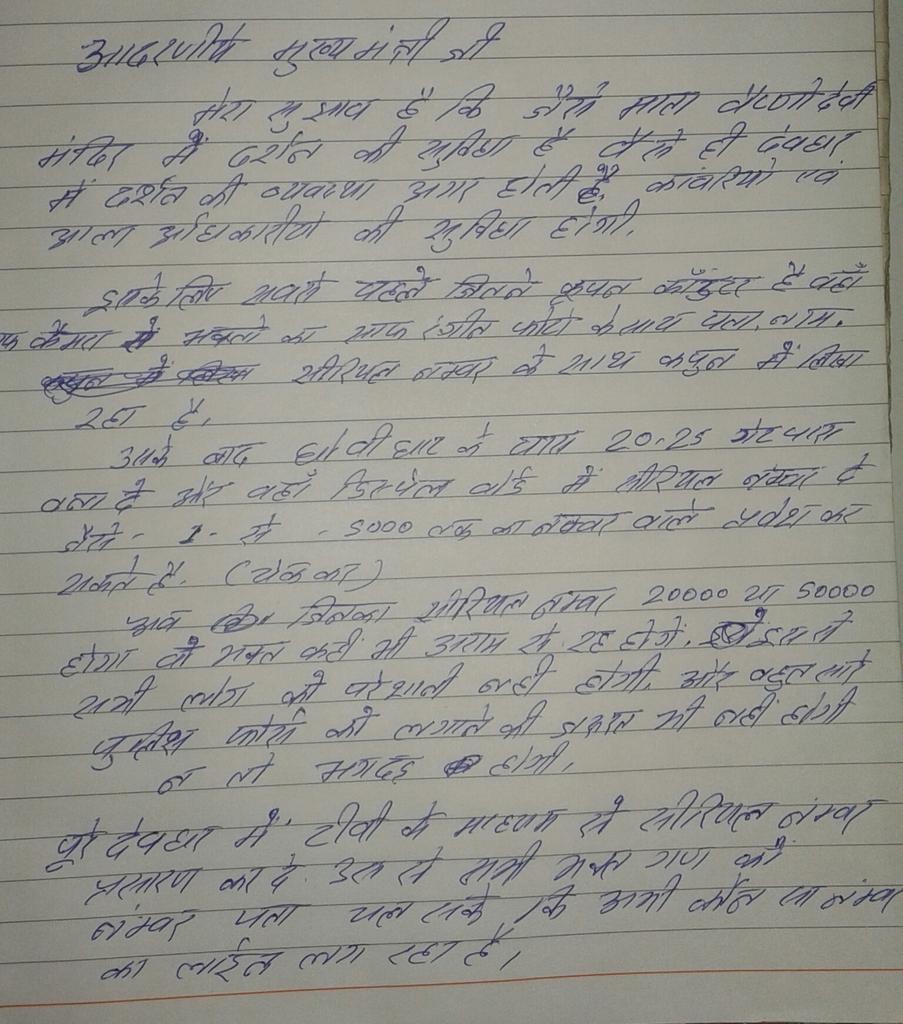 आदरणीय मुख्यमंत्री जी
मेरा सुझाव है कि जैसे माता वैष्णो देवी
मंदिर में दर्शन की सुविधा है वैसे ही देवघर
में दर्शन की व्यवस्था अगर होती है, कांवरियो एवं
आला अधिकारीयो की सुविधा होगी.
इसके लिए सबसे पहले जितने कूपन कॉउंटर है वहाँ
कैमरा से भक्तो का साफ रंगीन फोटो के साथ पता, नाम.
सीरियल नम्बर के साथ कपुन में लिखा
रहा है.
उसके बाद के पास 20-25 गेट पास
बना दे और वहाँ डिस्पेल बोर्ड में सीरियल नम्बर दे
जैसे - 1 - से - 5000 तक का नम्बर वाले प्रवेश कर
सकते है. (चेक कर)
अब जिनका सीरियल नम्बर 20000 या 50000
होगा वो भक्त कहीं भी आराम से रह होगें. इस से
सभी लोग को परेशानी नही होगी. और बहुत सारे
पुलिश फोर्स को लगाने की जरूरत भी नहीं होगी
न तो भगदड़ होगी.
पूरे देवघर में टीवी के माध्यम से सीरियल नम्बर
प्रसारण कर दे. उस से सभी भक्त गण को
नंम्बर पता चल सके कि अभी कौन सा नंम्बर
का लाईन लग रहा है.